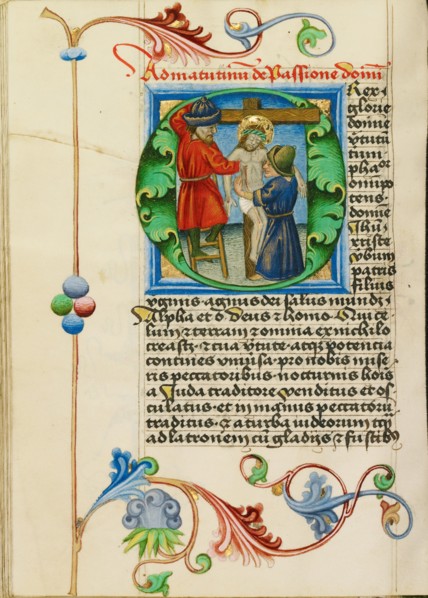 Ad matutinū de Passione domī
Rex
glorie
domīe
v̄tutū
tum
phaor
omīpo
tens
domīe
Ihū
xpiste
v̄bum
patris
filius
v̄ginis · agnus dei salus mundi ·
Alpha et ō · deus & homo · Qui ce
lum & terram & omnia ex nichilo
creasti · & tua v̄tute · atqꝫ potentia
contines vniūsa · pro nobis mise
ris peccatoribus · nocturnis hoīs
a Iuda traditore venditus et os
culatus · et in manus peccatorū
traditus · & a turba iudeorum tqꝫ
ad latronem cū gladijs & fustibꝫ